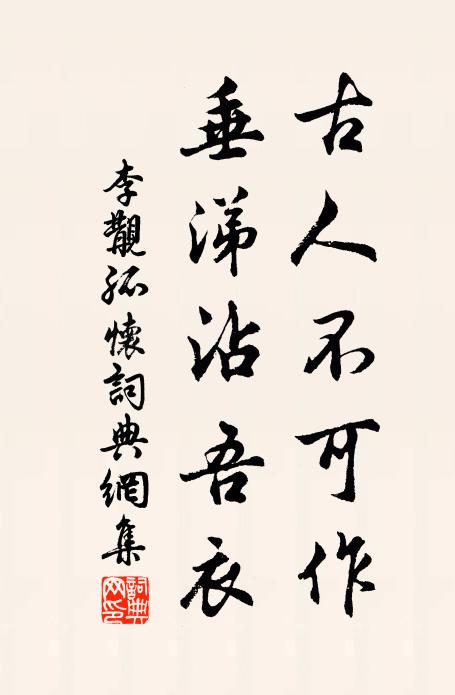 古人不可作
垂涕沾吾衣
李覯孤懷詞典網集
詞典网印